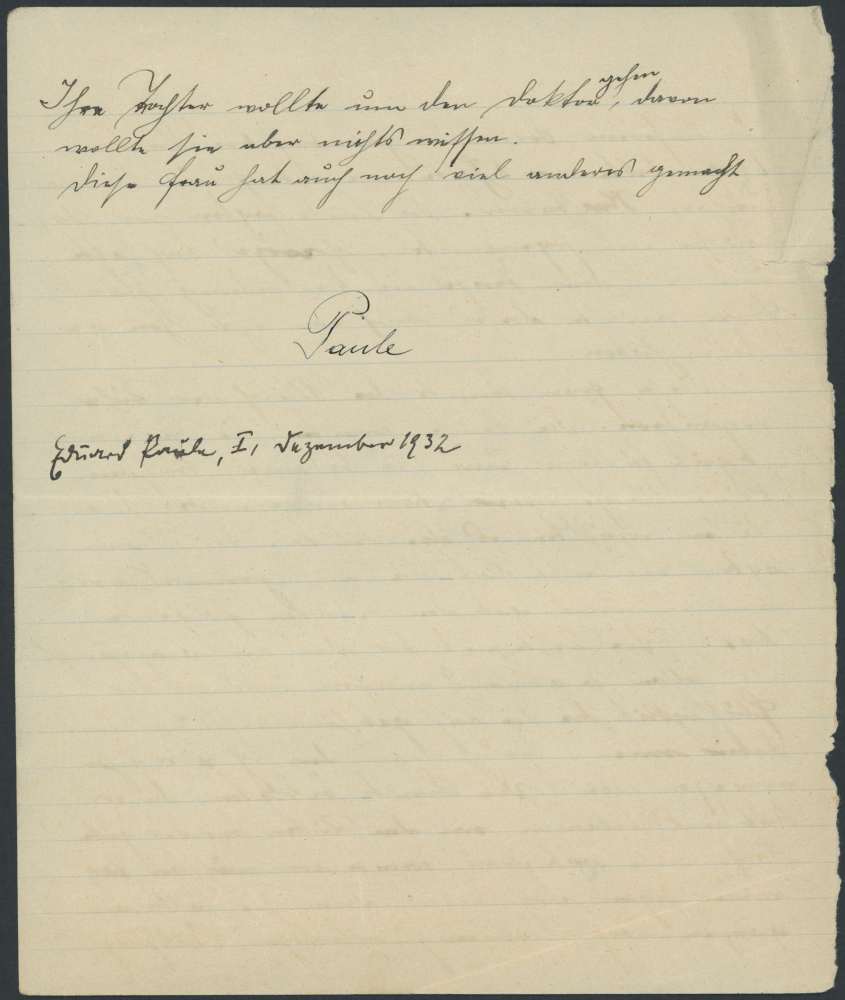 Ihre Tochter wollte um den Doktor gehen, davon
wollte sie aber nichts wissen.
Diese Frau hat auch noch viel anderes gemacht
Paule
Eduard Paule, I, Dezember 1932